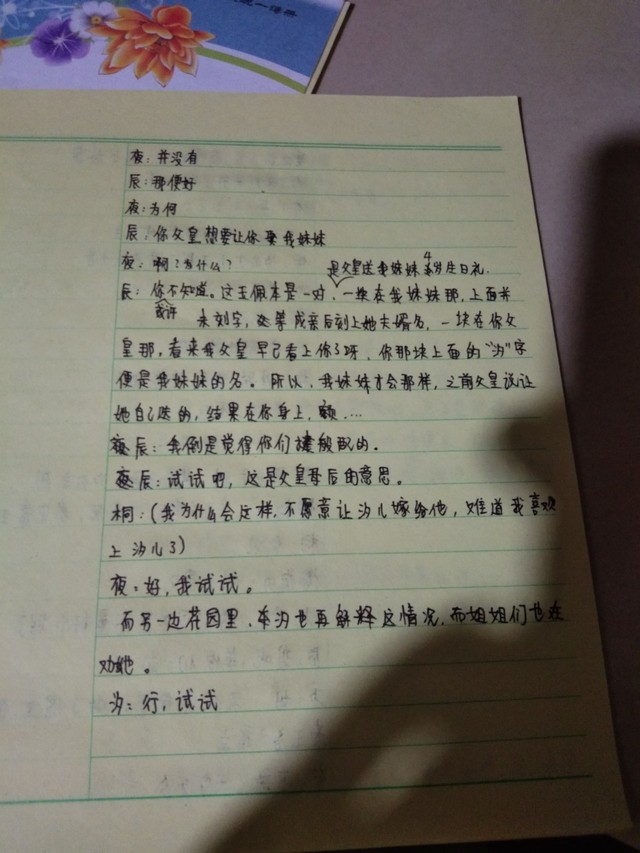 夜：并没有
辰：那便好
夜：为何
辰：你父皇想要让你娶我妹妹
夜：啊？为什么？
是父皇送我妹妹4岁生日礼.
辰：你不知道。这玉佩本是一对，一块在我妹妹那，上面并
或许
未刻字，这等成亲后刻上她夫婿名，一块在你父
皇那，看来我父皇早已看上你了呀，你那块上面的“汐”字
便是我妹妹的名。所以，我妹妹才会那样，之前父皇说让
她自己送的，结果在你身上，额....
辰：我倒是觉得你们挺般配的。
辰：试试吧，这是父皇母后的意思。
桐：(我为什么会这样，不愿意让汐儿嫁给他，难道我喜欢
上汐儿了)
夜：好，我试试。
而另一边花园里，汐也再解释这情况，而姐姐们也在
劝她。
汐：行，试试